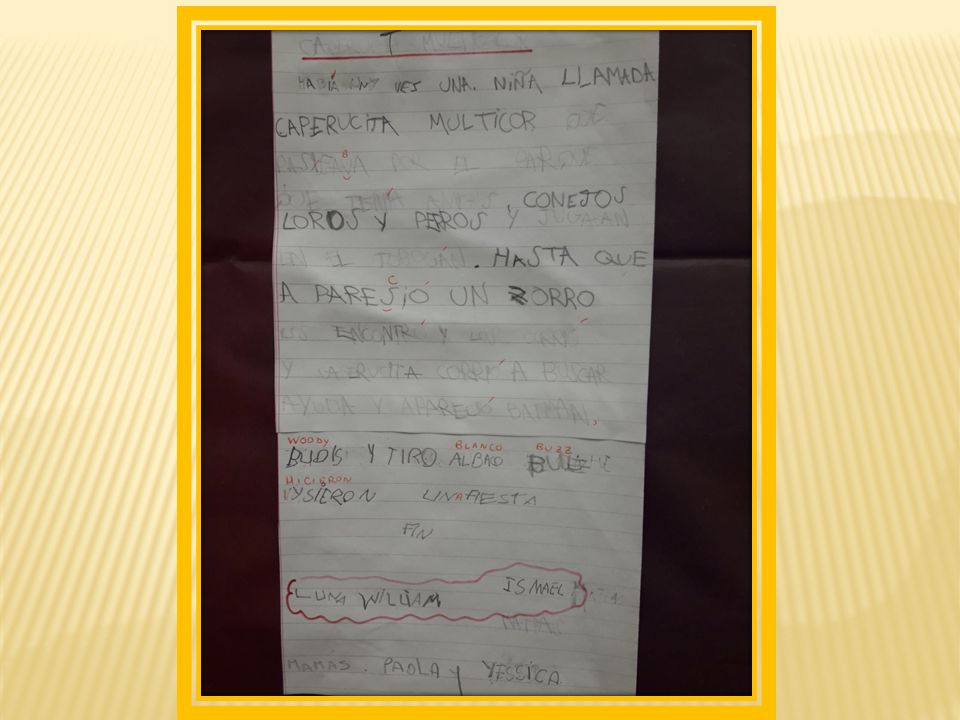 CAPERUCITA MULTICOLOR
HABÍA UNA VES UNA. NIÑA LLAMADA
CAPERUCITA MULTICOR QUE
PASEAVA POR EL PARQUE
B
QUE TENÍA, CONEJOS
LOROS Y PERROS Y JUGABAN
EN EL TOBOGÁN. HASTA QUE
C
A PARESIÓ UN ZORRO
LOS ENCONTRÓ Y LOS
Y CAPERUCITA CORRIÓ A BUSCAR
AYUDA Y APARECIÓ BATMAN,
WOODY BLANCO BUZZ
BUDIS Y TIRO ALBAO
HICIERON
YSIERON UNA FIESTA
FIN
LUNA WILLIAM ISMAEL
MATÍAS
MAMÁS. PAOLA Y YESSICA